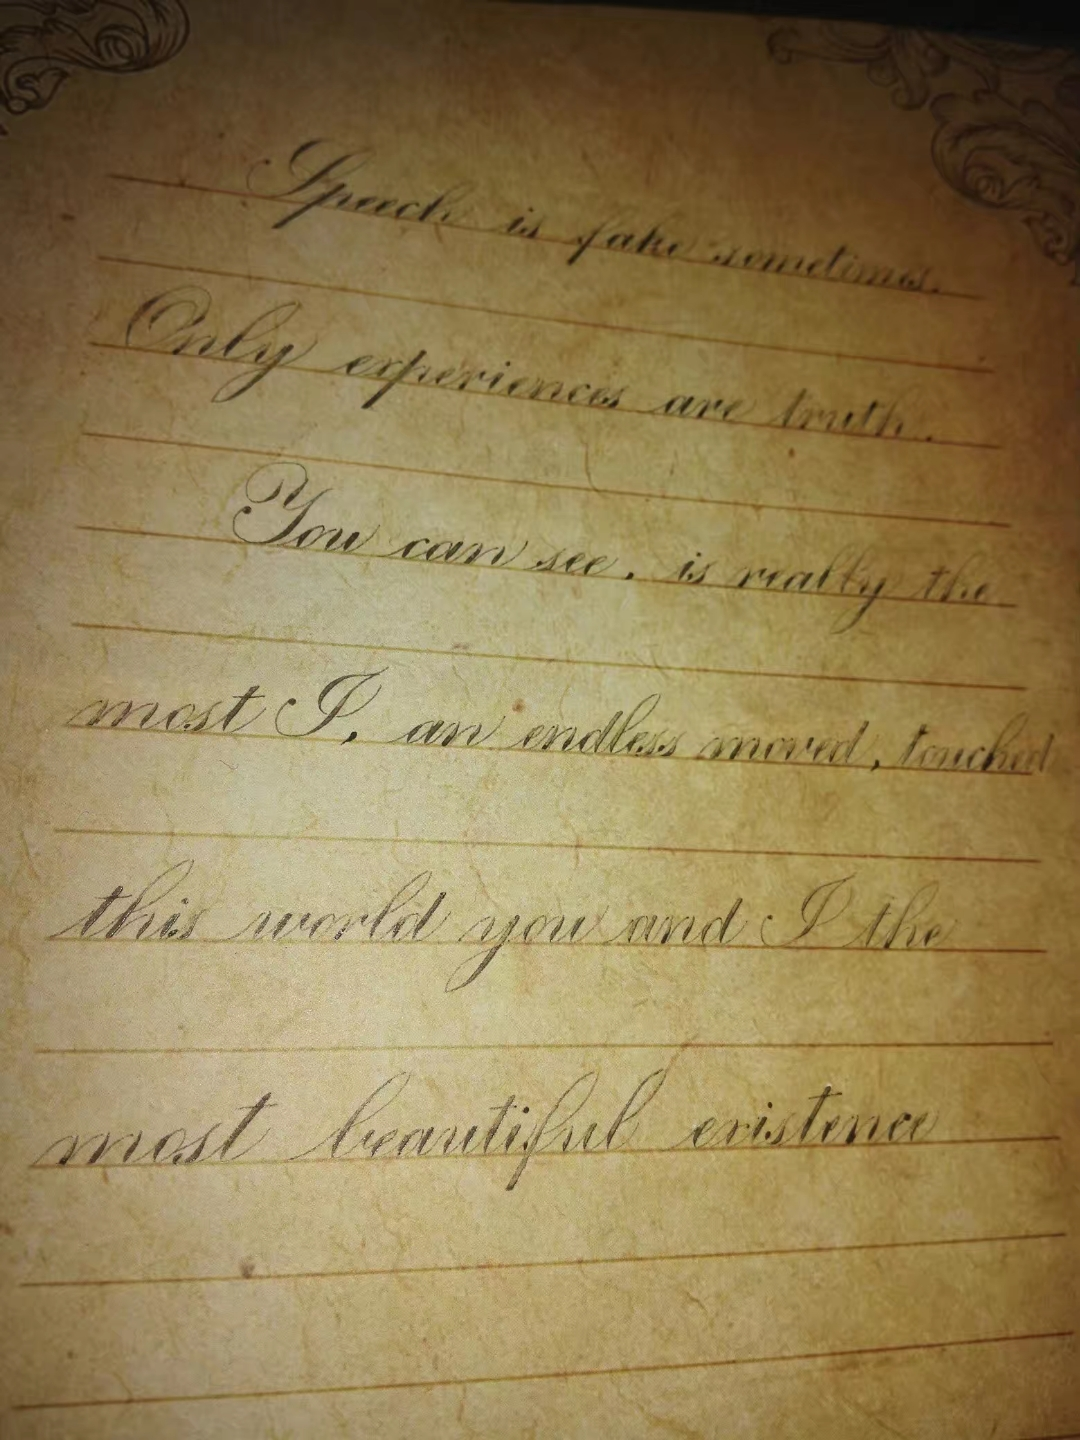 Speech is fake sometimes.
Only experiences are truth.
You can see. is really the
most I, an endless moved, touched
this world you and I the
most beautiful existence